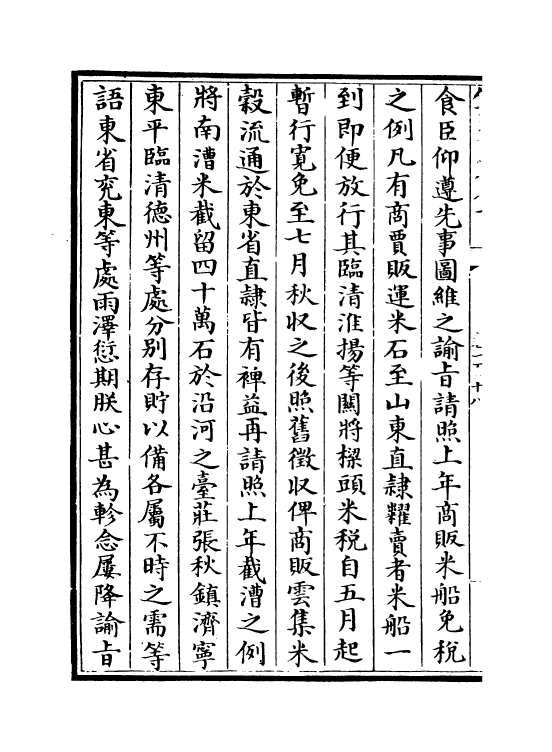 食臣仰遵先事圖維之諭㫖請照上年商販米船免税
之例凡有商賈販運米石至山東直隷糶賣者米船一
到即便放行其臨清淮揚等關將樑頭米税自五月起
暫行寛免至七月秋収之後照舊徴収俾商販雲集米
穀流通於東省直隷皆有裨益再請照上年截漕之例
將南漕米截留四十萬石於沿河之臺莊張秋鎮濟寧
東平臨清德州等處分别存貯以備各屬不時之需等
語東省兖東等處雨澤愆期朕心甚為軫念屢降諭㫖